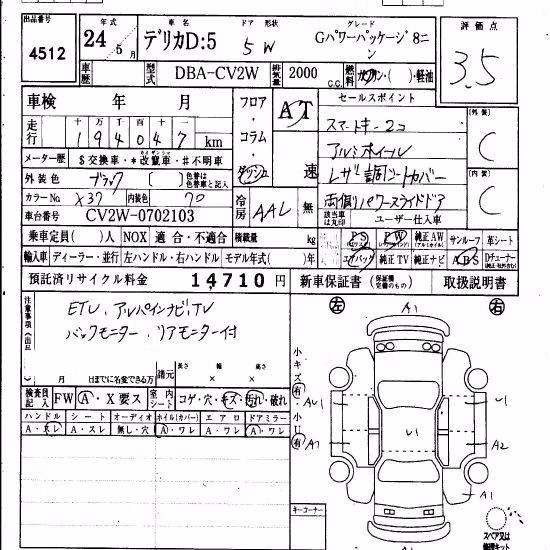 出品番号 4512
年式 24年 5月
車名 デリカD:5
ドア 形状 5W
グレード Gパワーパッケージ8ニン
評価点 3.5
車歴
型式 DBA-CV2W
排気量 2000 c.c.
燃料 ガソリン・( )・軽油
車検 年 月
走行 十万 万 千 百 十 一
194047 km
メーター歴 $交換車・*改竄車・#不明車
外装色 ブラック [ ] 色替は色替車と記入
カラーNo X37 内装色 70
車台番号 CV2W-0702103
フロア・コラム・ダッシュ
AT 速
冷房 AAC 無
セールスポイント
スマートキー2コ
アルミホイール
レザー調シートカバー
両側パワースライドドア
該当車は丸印 ユーザー仕入車
外装 C
内装 C
乗車定員( )人 NOX 適合・不適合 積載量 kg
PS PW 純正AW サンルーフ 革シート
輸入車 ディーラー・並行 左ハンドル・右ハンドル モデル年式( )年
エアバッグ 純正TV 純正ナビ ABS Dチューナー
預託済リサイクル料金 14710円
新車保証書 (保証継承可能なもの) 取扱説明書
注意事項(出品)
ETC、アルパインナビ、TV
バックモニター、リアモニター付
月 日までに名変できる方
諸元 長さ 幅 高さ
検査員記入 FW A・X要ス 室内シート コゲ・穴・キズ・汚れ・破れ
ハンドル シート オーディオ ホイル(カバー) エアロ ドアミラー
A・スレ A・スレ 無し・穴 A・ワレ A・ワレ A・ワレ
小キズ 有
小U 有
キーコーナー
左 右
A1
AU1
U1
A1
U1
A2
A1
スペア又は修理キット